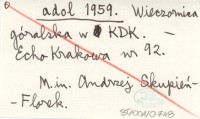 adol 1959. Wieczornica
góralska w KDK. –
Echo Krakowa nr 92.
M.in. Andrzej Skupień-
-Florek.